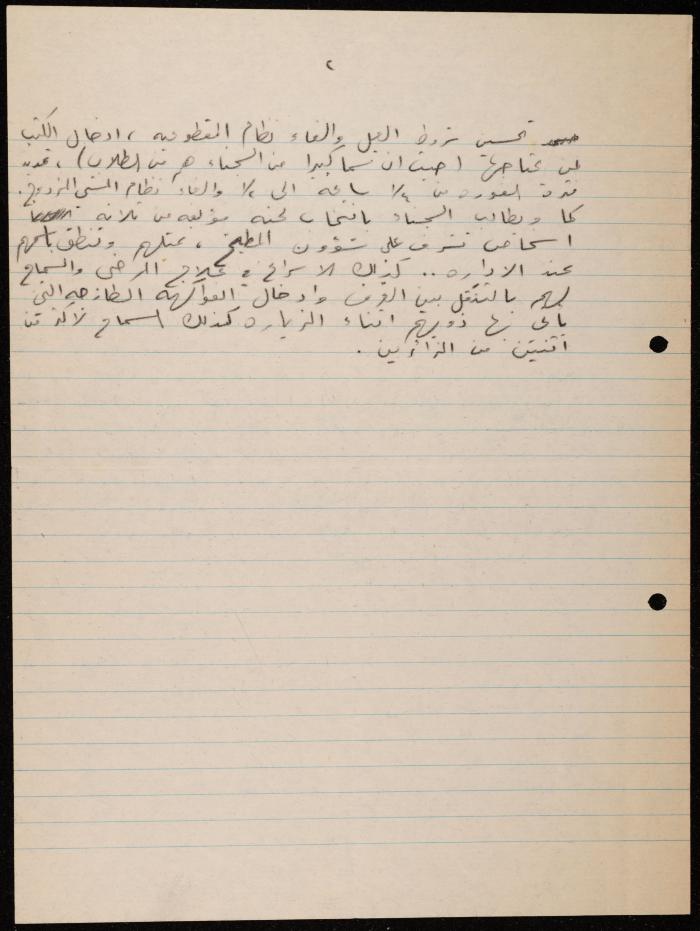 ٢
تحسين شروط العمل والغاء نظام المقطوعيه ، ادخال الكتب
لمن يحتاجها ( حيث ان قسما كبيرا من السجناء هم من الطلاب ) ، تمديد
فترة الفوره من ١/٤ ساعة الى ١/٢ والغاء نظام المشي المزدوج .
كما ويطالب السجناء بانتخاب لجنه مؤلفه من ثلاثة
اشخاص تشرف على شؤون المطبخ ، تمثلهم وتنطق باسمهم
عند الاداره .. كذلك الاسراع في علاج المرضى والسماح
لهم بالتنقل بين الغرف وادخال الفواكهه الطازجه التي
يأتي بها ذويهم اثناء الزياره كذلك السماح لأكثر من
اثنين من الزائرين .